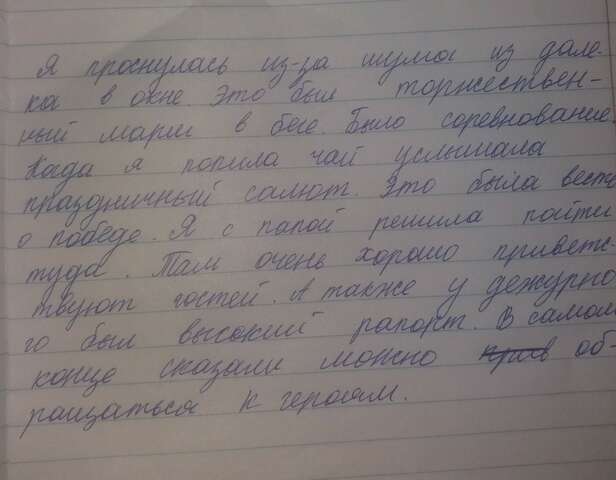 Я проснулась из-за шума из дале-
ка в окне. Это был торжествен-
ный марш в беге. Было соревнование.
Када я попила чай услышала
праздничный салют. Это была весть
о победе. Я с папой решила пойти
туда. Там очень хорошо приветс-
твуют гостей. А также у дежурно-
го был высокий рапорт. В самом
конце сказали можно об-
ращаться к героям.